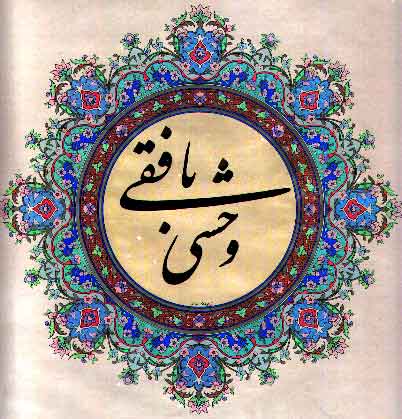 وحشی بافقی